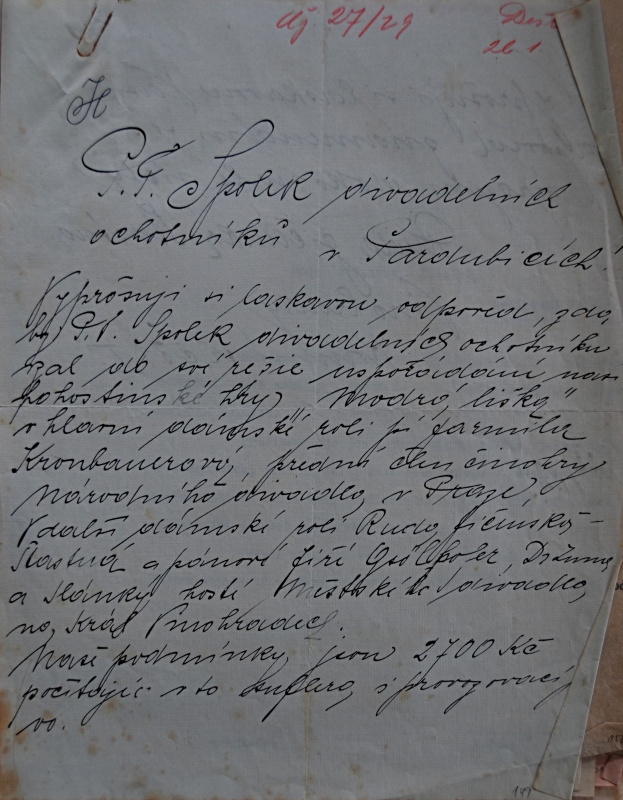 Čj 27/29
26.1
P.T. Spolek divadelních
ochotníků v Pardubicích.
Vyprošuji si laskavou odpověd, zda
by P.T. Spolek divadelních ochotníku
vzal do své režie uspořádání naší
pohostinské hry "Modrá liška"
v hlavní dámské roli pí Jarmila
Kronbauerová, přední člen činohry
Národního divadla v Praze,
V další dámské roli Ruda Jičínská-
Šťastná a pánové Jiří
a hosté Městského divadla
na Král Vinohradech.
Naše podmínky jsou 2700 Kč
počítajíc v to suflera, i provozovací
vo.